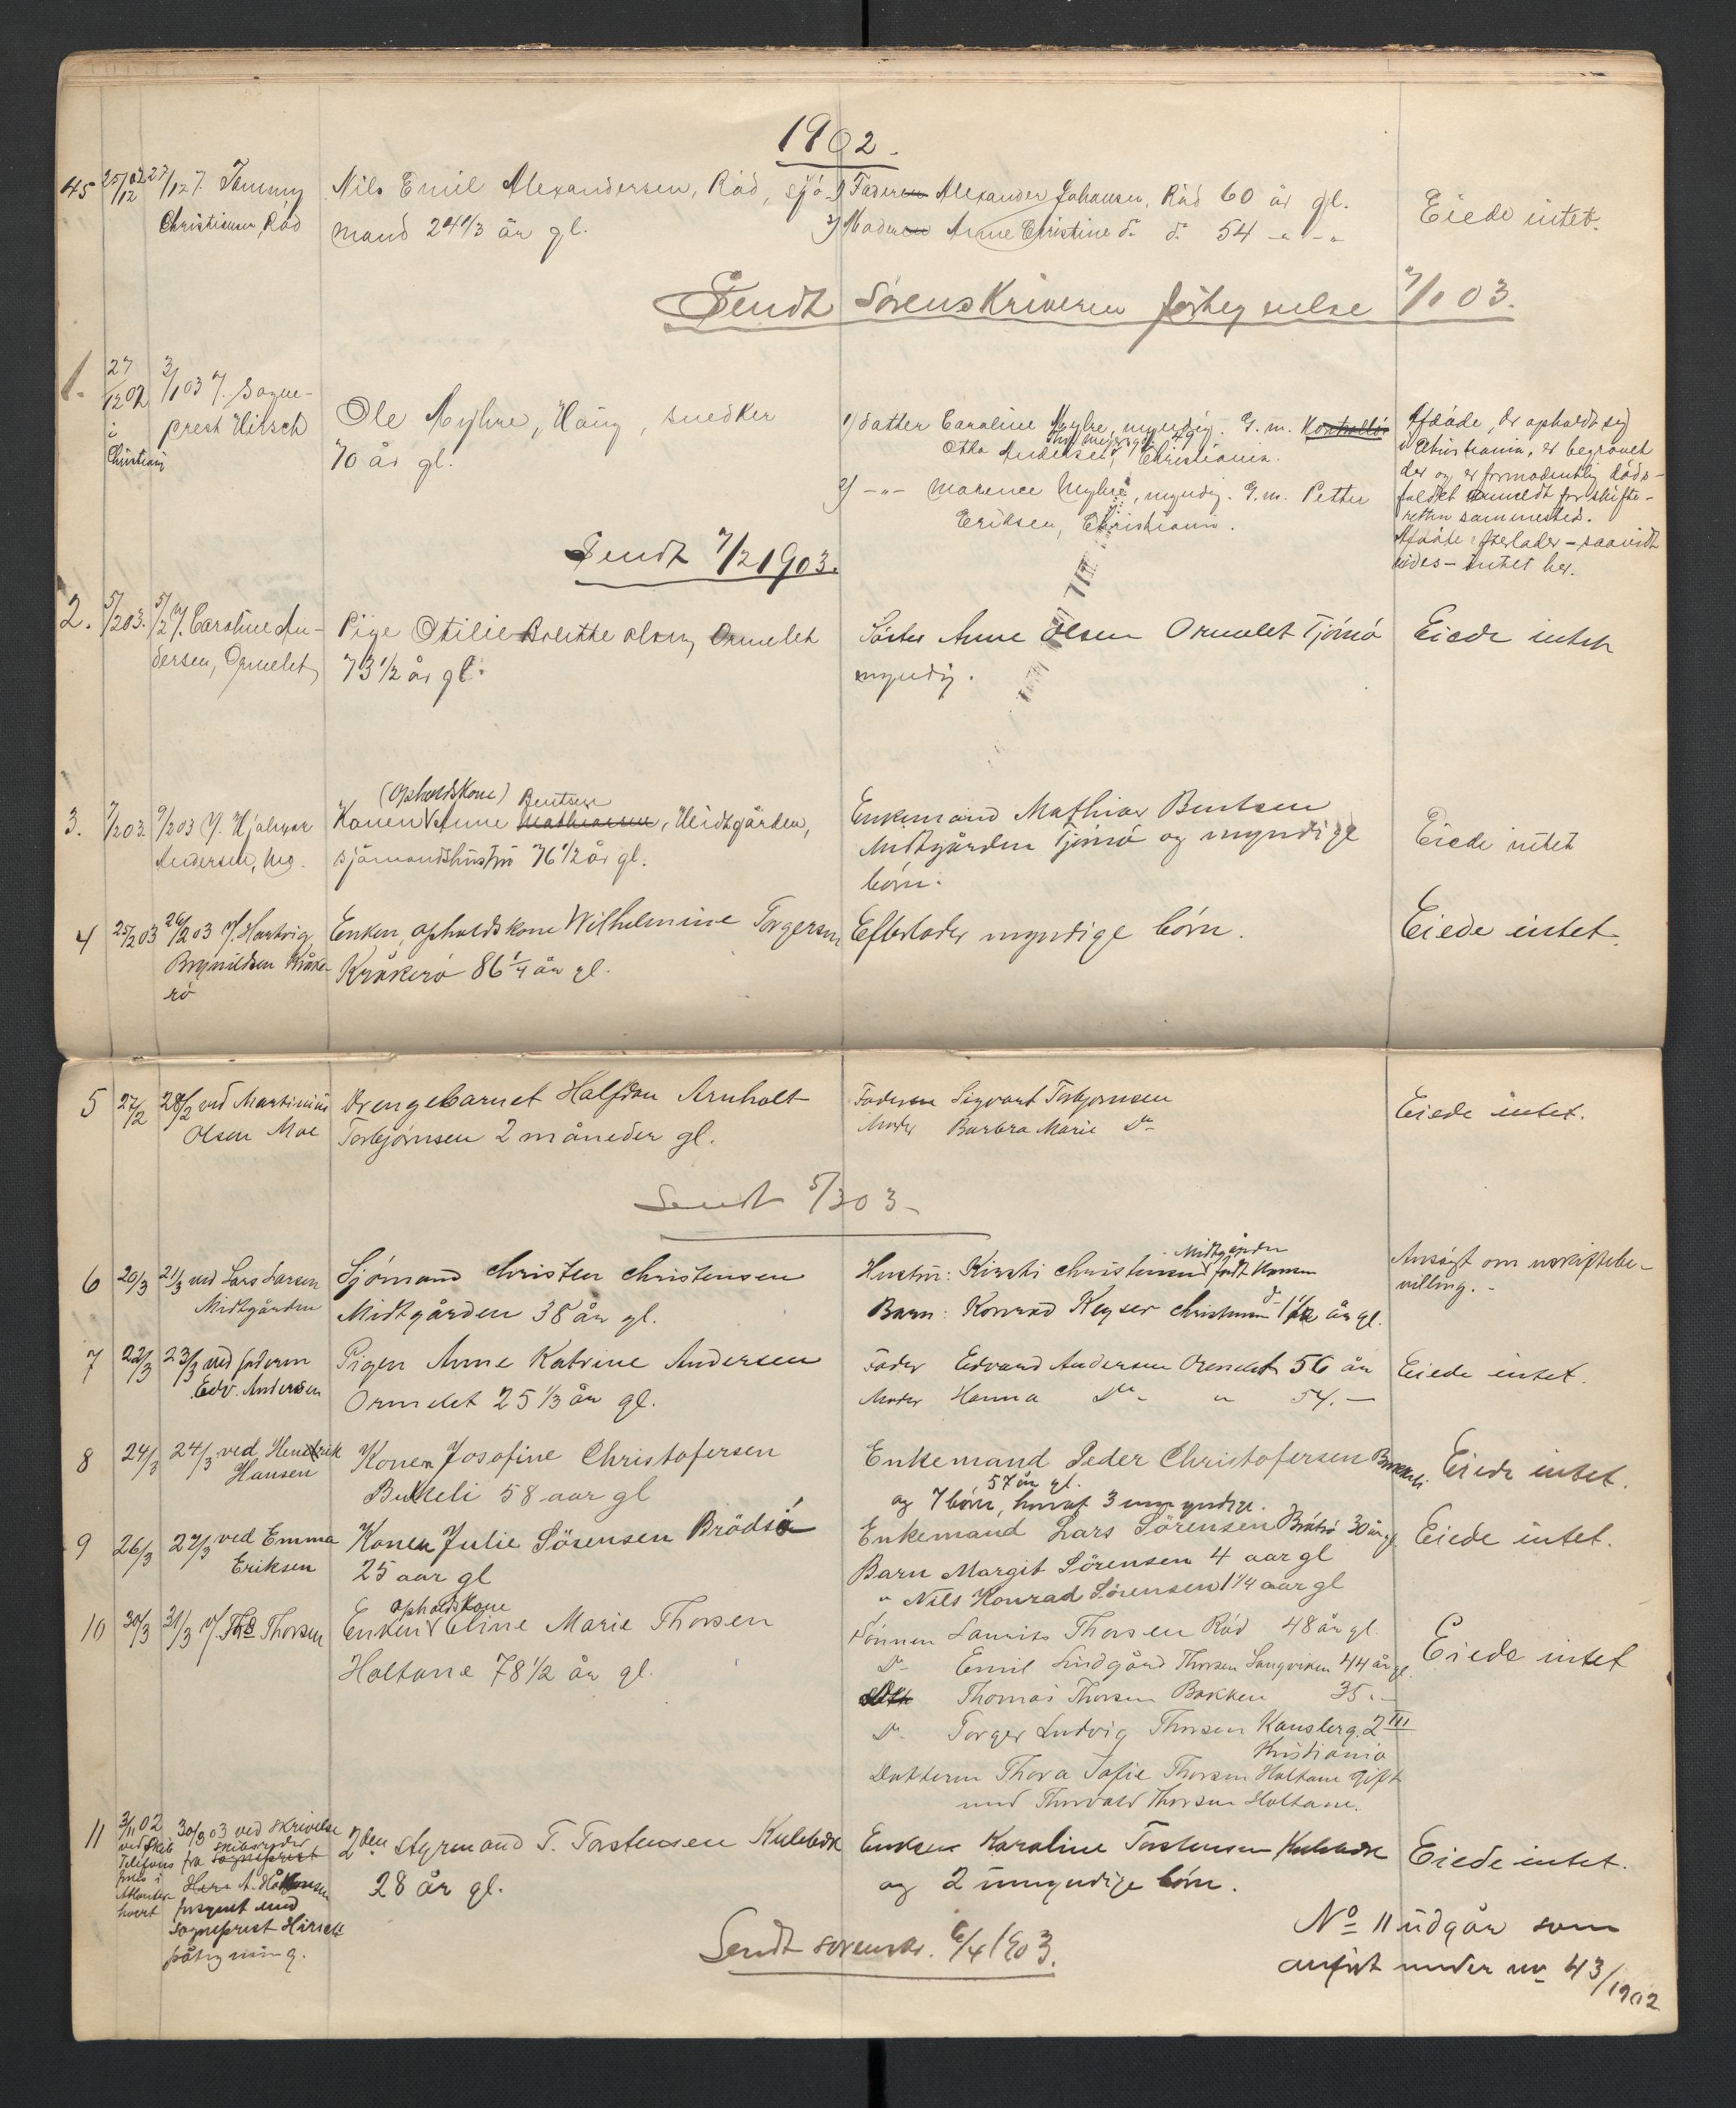 1902.
45 25/12 02 27/12 v. Tommy Nils Emil Alexandersen, Råd, sjö- 1) Faderen Alexander Johansen, Råd 60 år gl. Eiede intet.
Christiansen, Råd mand 24 1/3 år gl. 2) Moderen Anne Christine do. do. 54 -"-"
Sendt Sörenskriveren fortegnelse 7/1 03.
1. 27/12 02 3/1 03 v. Sogne- Ole Myhre, Haug, snedker 1) Datter Caroline Myhre, myndig. G. m. Kontrollör Afdöde, der opholdt sig
i prest Hirsch 70 år gl. Otto Andersen, Thv. Meyersgd. 49, Christiania. i Christiania, er begravet
Christiania der og er formodentlig döds-
2) -"- Marence Myhre, myndig. G. m. Petter faldet anmeldt for skifte-
Eriksen, Christiania. retten sammesteds.
Sendt 7/2 1903. Afdöde efterlader - saavidt
vides - intet her.
2. 5/2 03. 5/2 v. Caroline An- Pige Otilie Bolette Olsen, Ormelet Söster Anne Olsen Ormelet Tjömö Eiede intet
dersen, Ormelet 73 1/2 år gl. myndig.
(Opholdskone) Bentsen
3. 7/2 03. 9/2 03 v. Hjalmar Konen Anne Mathiasen, Midtgården, Enkemand Mathias Bentsen Eiede intet
Andersen, Mo. sjömandshustru 76 1/2 år gl. Midtgården Tjömö og myndige
börn.
4 25/2 03 26/2 03 v. Hartvig Enken, opholdskone Wilhelmine Torgersen Efterlader myndige börn. Eiede intet.
Brynildsen Kråke- Kråkerö 86 1/4 år gl.
rö
5 27/2 28/2 ved Martinius Drengebarnet Halfdan Arnholt Faderen Sigvart Torbjørnsen Eiede intet.
Olsen Moe Torbjørnsen 2 måneder gl. Moder Barbra Marie Do
Sendt 5/3 03.
6 20/3 21/3 ved Lars Larsen Sjömand Christen Christensen Hustru: Kirsti Christensen Midtgården født Hansen Ansögt om uskiftebe-
Midtgården Midtgården 38 år gl. Barn: Konrad Keyser Christensen do 1 1/2 år gl. villing.-
7 22/3 23/3 ved faderen Pigen Anne Katrine Andersen Fader Edvard Andersen Ormelet 56 år Eiede intet.
Edv. Andersen Ormelet 25 1/3 år gl. Moder Hanna Do " 54.-
8 24/3 24/3 ved Hendrik Konen Josofine Christofersen Enkemand Peder Christofersen Bukkeli Eiede intet.
Hansen Bukkeli 58 aar gl 57 år gl.
og 7 börn, hvoraf 3 umyndige.
9 26/3 27/3 ved Emma Konen Julie Sörensen Brödsö Enkemand Lars Sörensen Brötsö 30 år gl Eiede intet.
Eriksen 25 aar gl Barn Margit Sörensen 4 aar gl
" Nils Konrad Sörensen 1 1/4 aar gl
opholdskone
10 30/3 31/3 v. Ths Thorsen Enken Eline Marie Thorsen Sönnen Laurits Thorsen Råd 48 år gl. Eiede intet
Holtane 78 1/2 år gl. Do Emil Lindgård Thorsen Langviken 44 år gl.
Do Thomas Thorsen Bakken 35.-
Do Torger Ludvig Thorsen Kanslerg. 2 III
Kristiania
Datteren Thora Sofie Thorsen Holtane gift
med Thorvald Thorsen Holtane.
11 3/11 02 30/3 03 ved skrivelse 2den styrmand T. Torstensen Kulebæk Enken Karoline Torstensen Kulebæk Eiede intet.
ved skib fra skibsreder sogneprest 28 år gl. og 2 umyndige börn.
Telefons
forlis i Herr A. Håkonsen
Atlanter- forsynet med
havet sogneprest Hirsch
påtegning.
Sendt sorenskr. 6/4 1903. No 11 udgår som
anført under no 43/1902